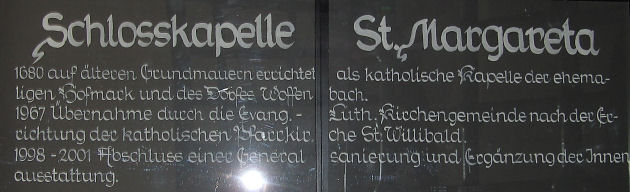 Schlosskapelle St. Margareta
1680 auf älteren Grundmauern errichtet als katholische Kapelle der ehema-
ligen Hofmark und des Dorfes Woffenbach.
1967 Übernahme durch die Evang. - Luth. Kirchengemeinde nach der Er-
richtung der katholischen Pfarrkirche St. Willibald.
1998 - 2001 Abschluss einer General sanierung und Ergänzung der Innen
ausstattung.